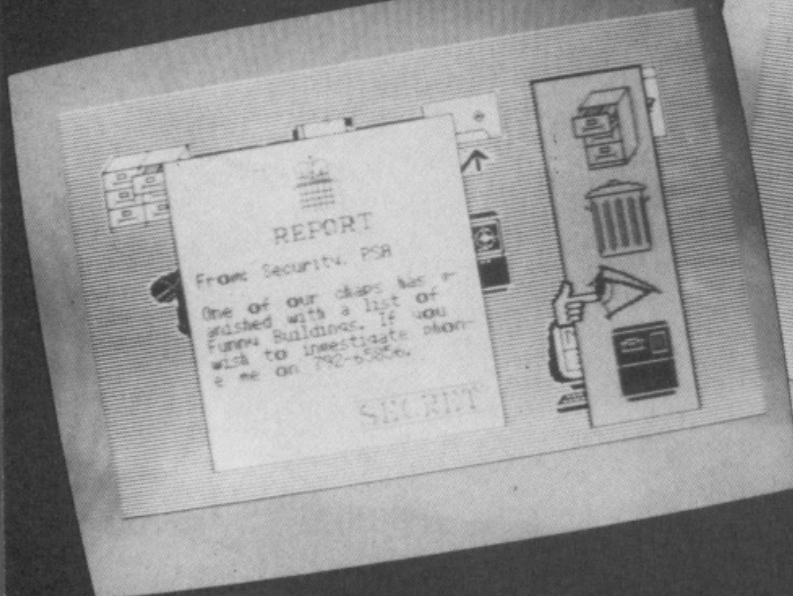 REPORT
From: Security, PSA
One of our chaps has v-
anished with a list of
Funny Buildings. If you
wish to investigate phon-
e me on 792-65056.
SECRET